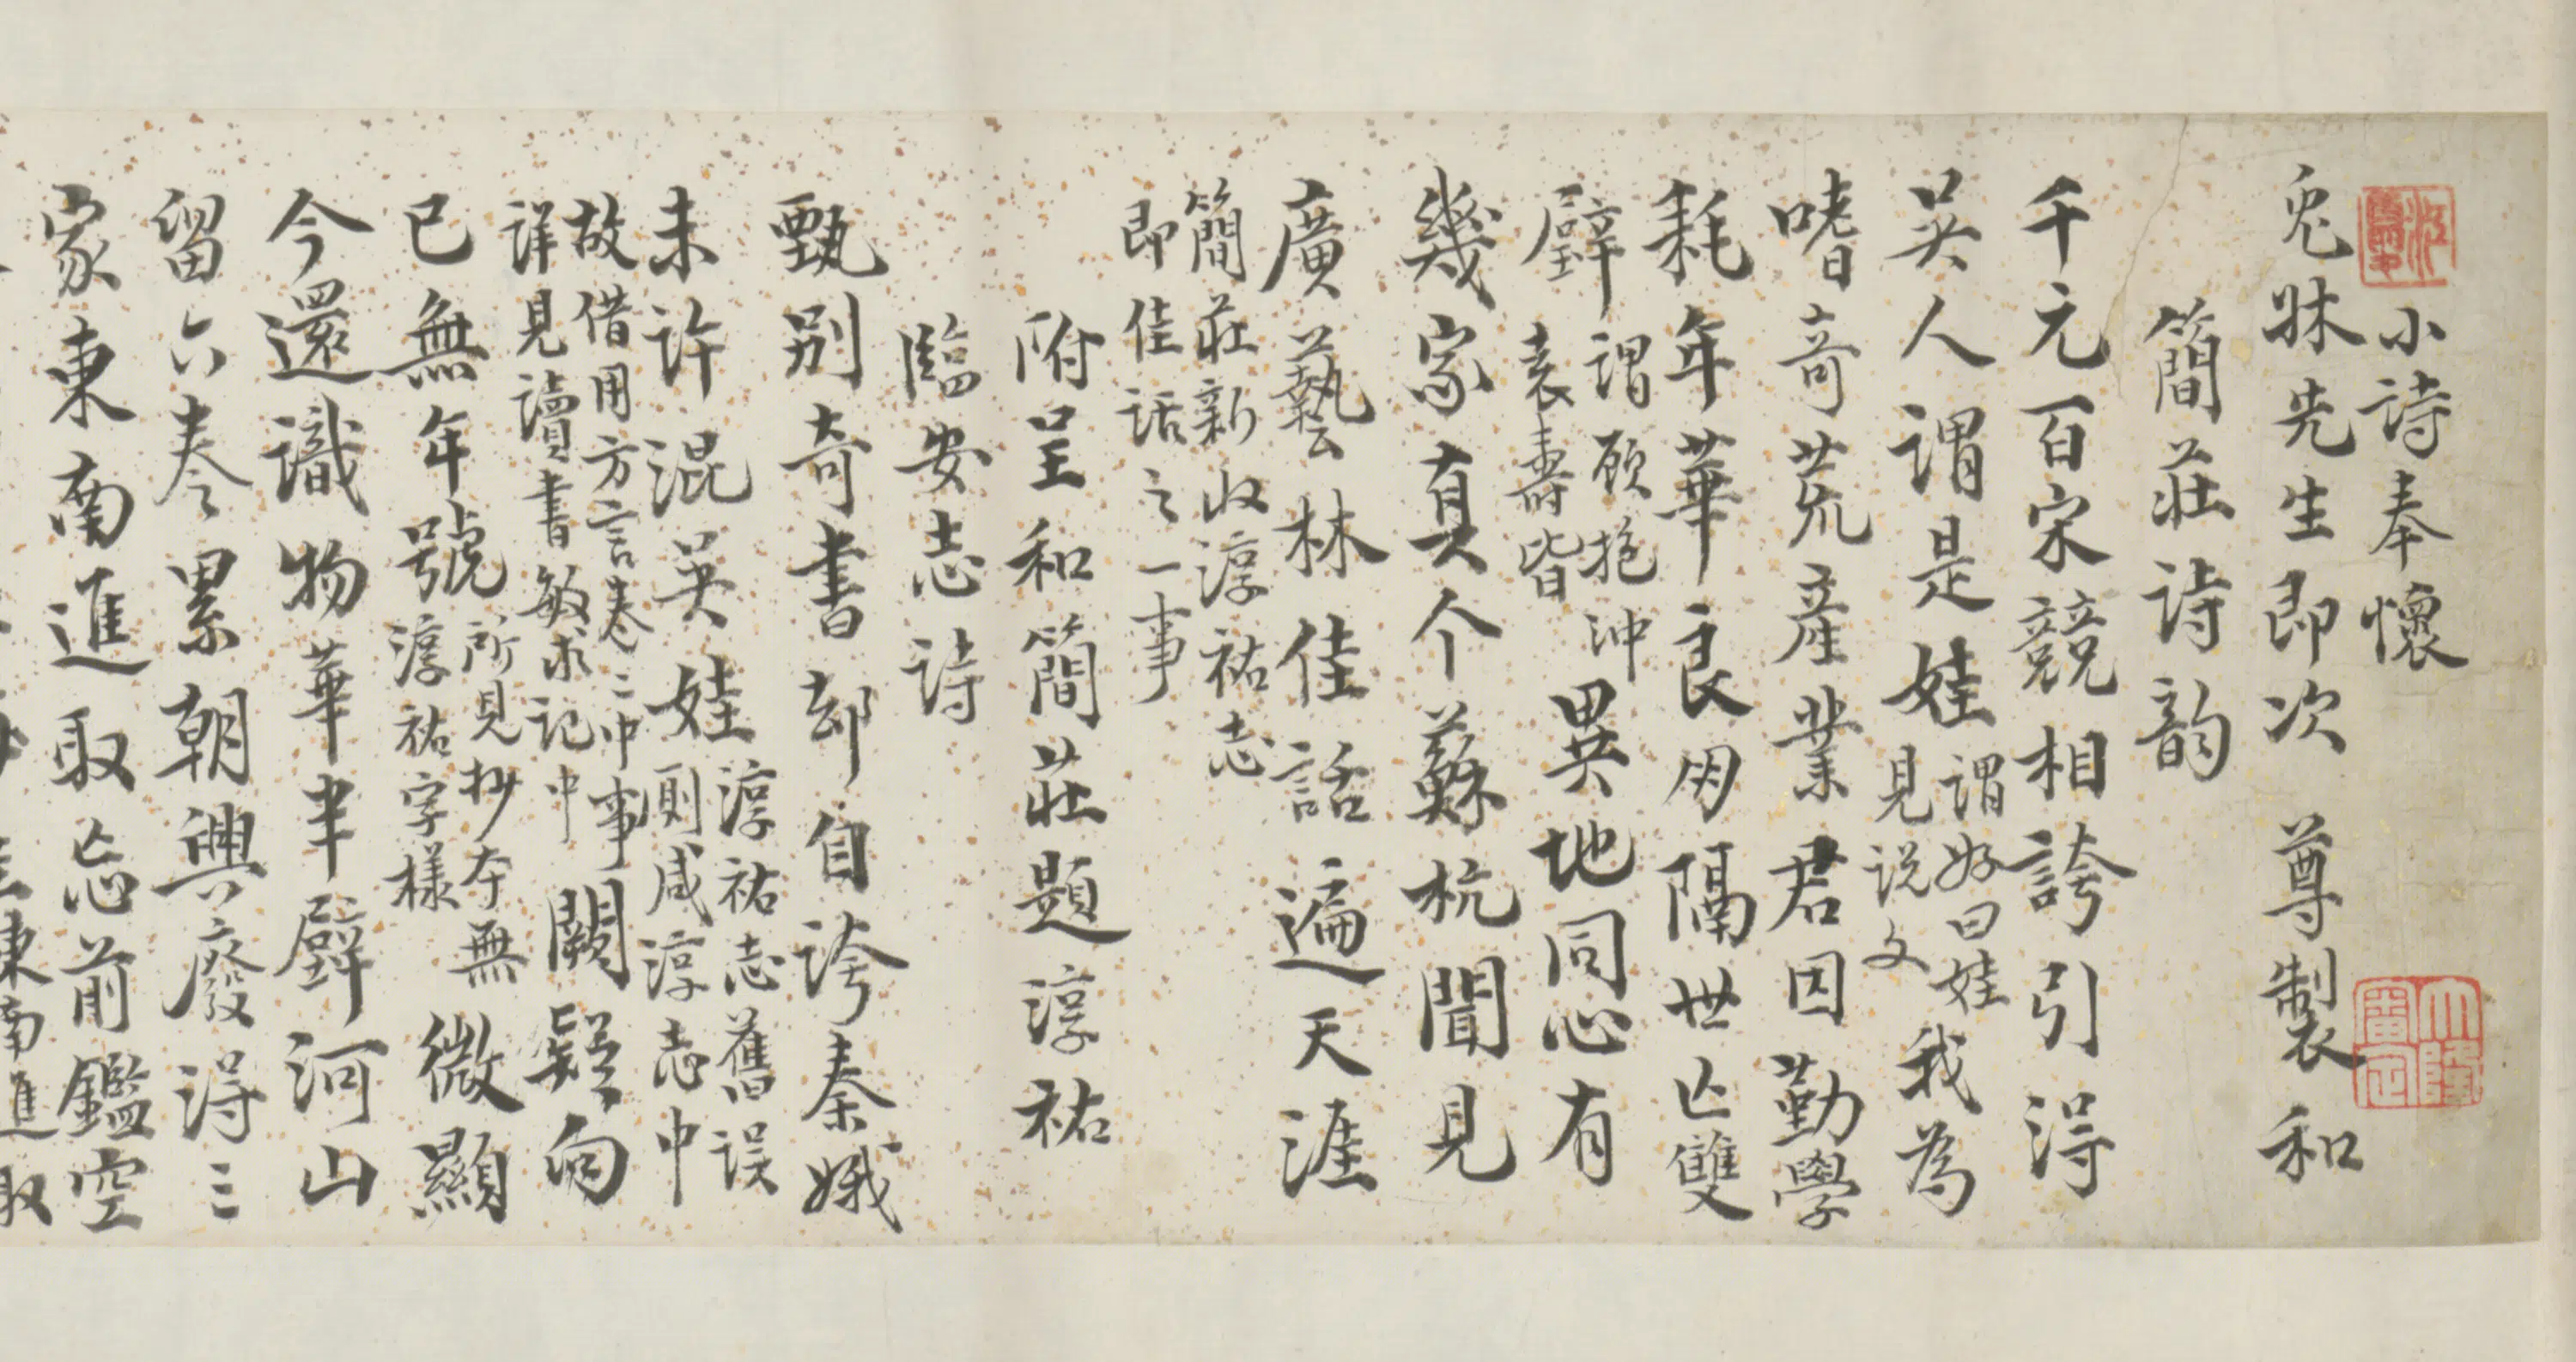 小詩奉懷
兎牀先生即次 尊製和
簡莊詩韵
千元百宋競相誇引得
吴人謂是娃
謂好曰娃
見说文
我為
嗜奇荒産業君因勤學
耗年華良朋隔世亾雙
璧
謂顾抱沖
袁壽皆
異地同心有
幾家真个蘇杭聞見
廣藝林佳話遍天涯
簡莊新收淳祐志
即佳话之一事
附呈和簡莊題淳祐
臨安志詩
甄别奇書却自誇秦娥
未許混吴娃
淳祐志舊误
厠咸淳志中
故借用方言卷二中事
詳見讀書敏求記中
闕疑向
已無年號
所見抄本無
淳祐字樣
微顯
今還識物華半璧河山
留六卷累朝興廢得三
家東南進取忘前鑑空
東南進取